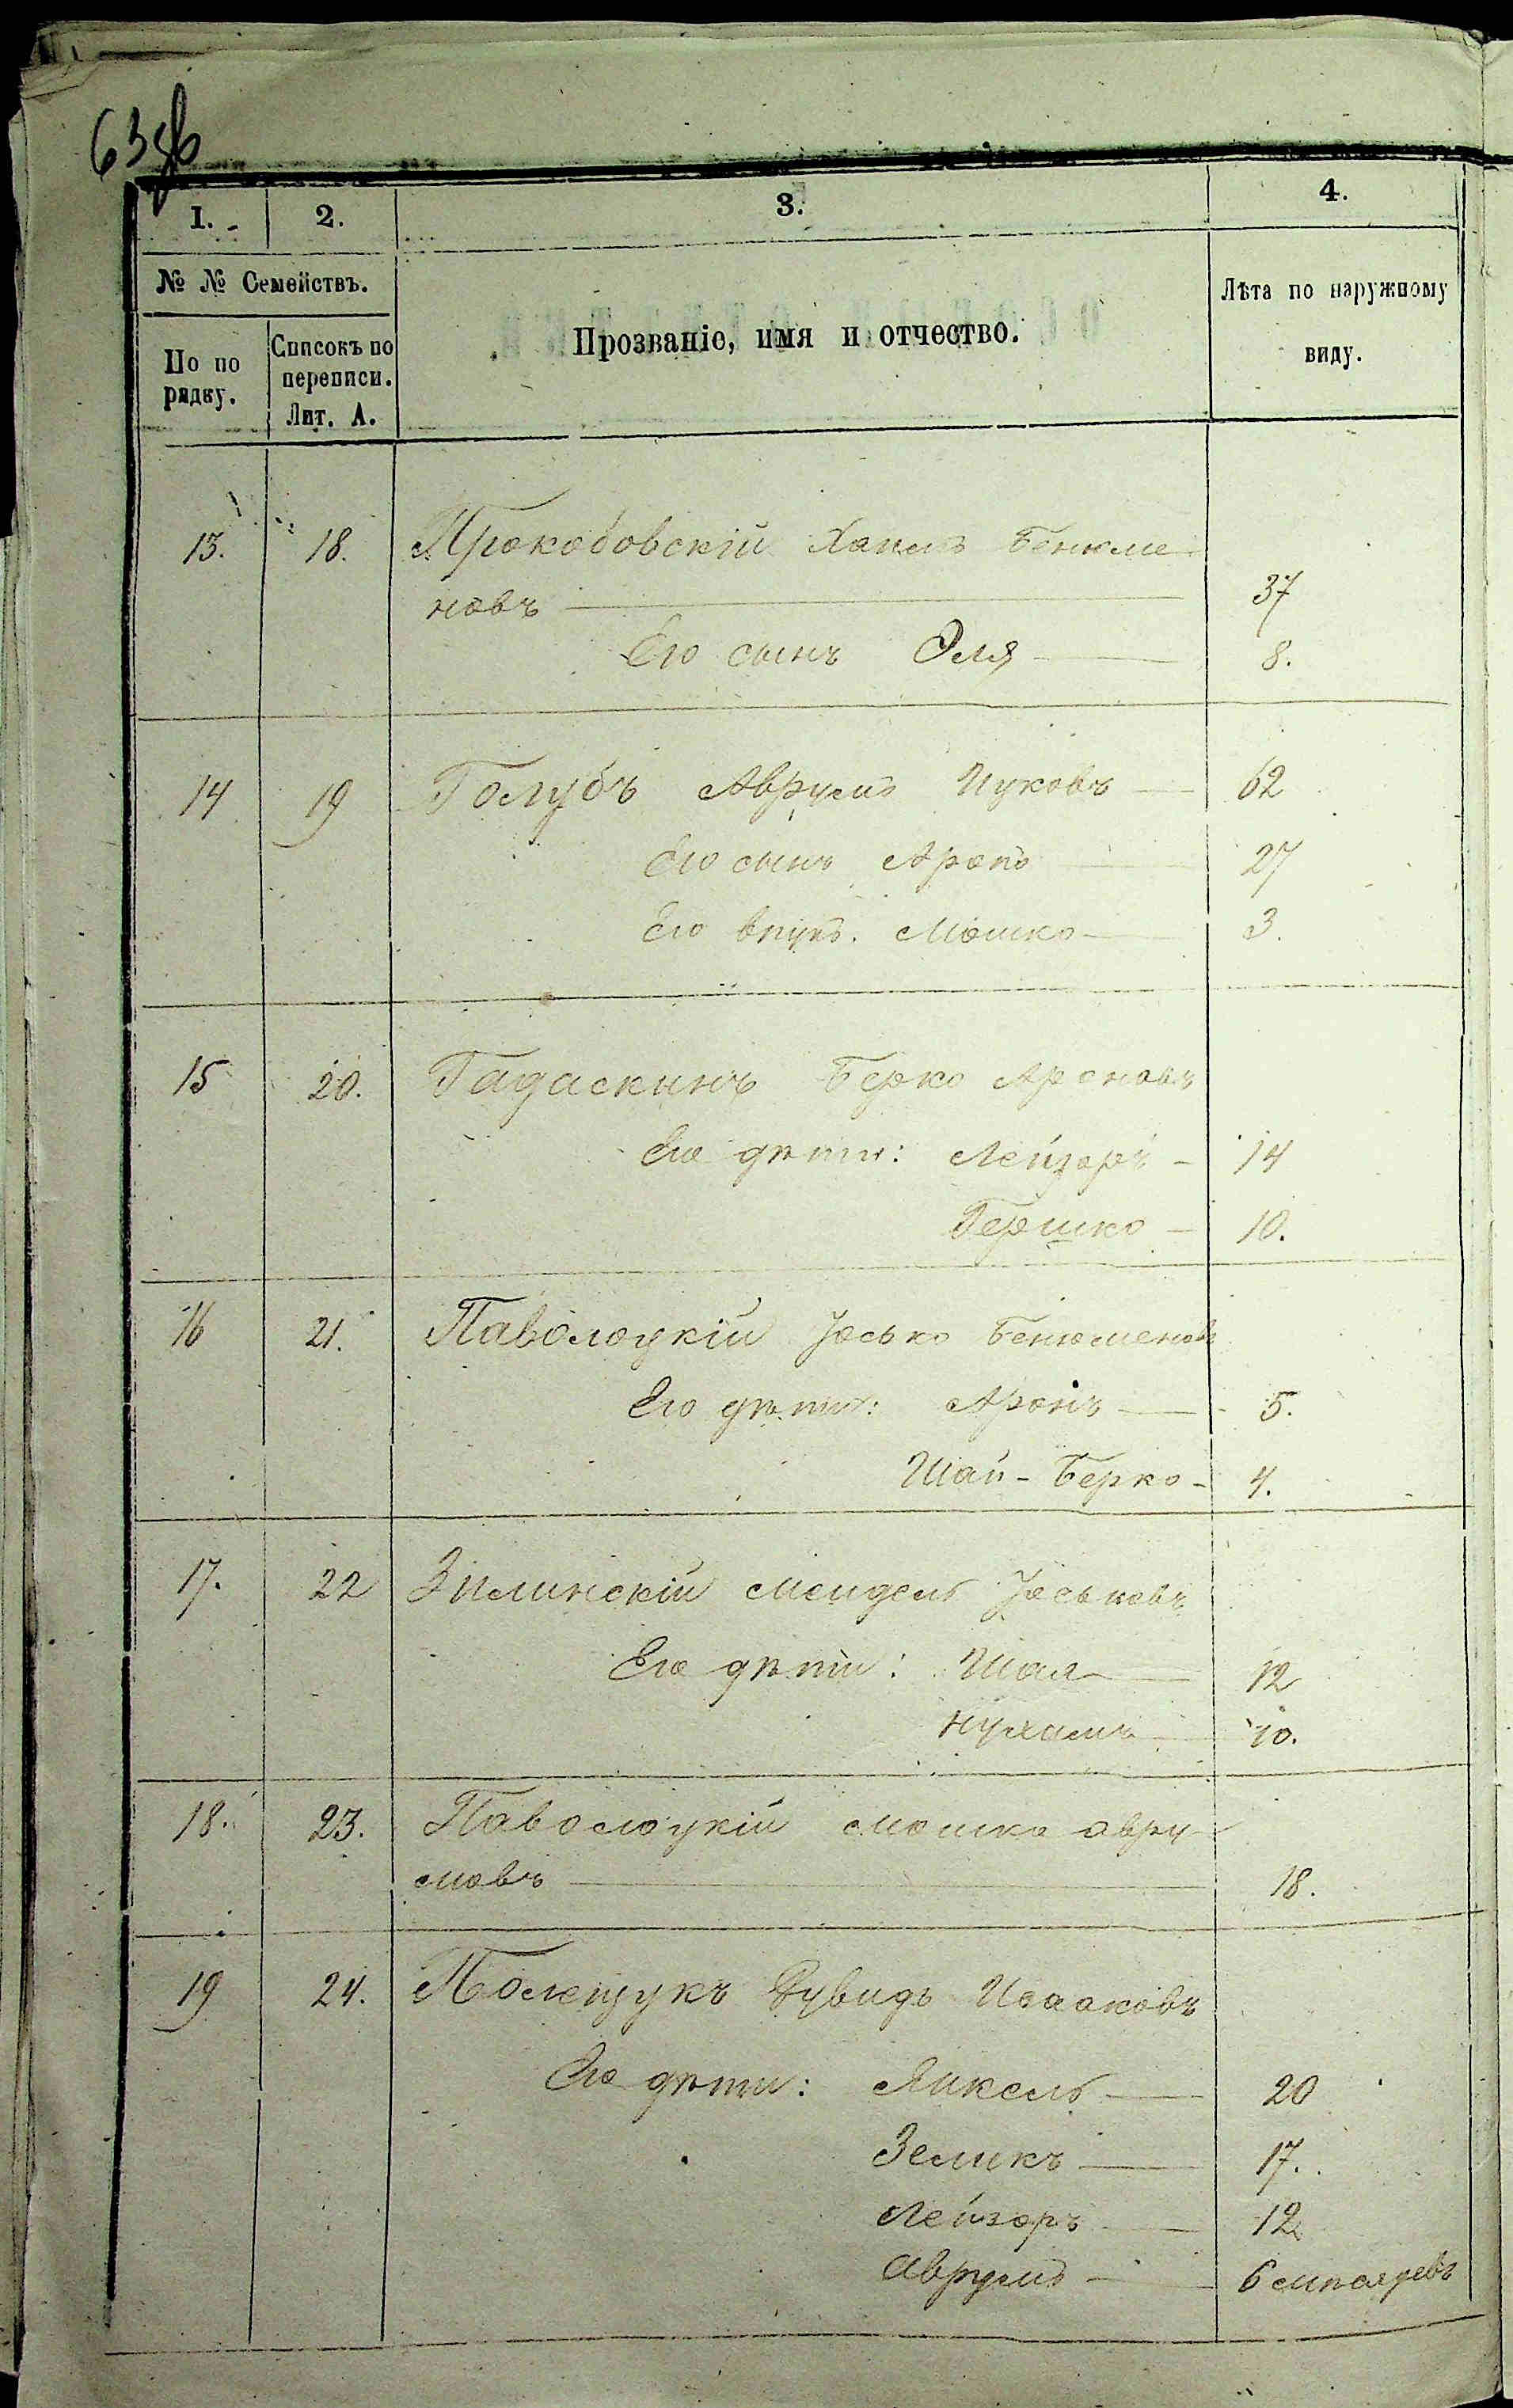 63 об
1. 2. 3. 4.
№ № Семействъ.
По по рядку.
Списокъ по переписи. Лит. А.
Прозваніе, имя и отчество.
Лѣта по наружному виду.
13. 18. Прокобовскій Хаимъ Бенюме-
новъ 37
Его сынъ Эля 8.
14 19 Голубъ Аврумъ Ицковъ 62
Его сынъ Аронъ 27
Его внукъ. Мошко 3.
15 20. Гадаскинъ Берко Ароновъ
Его дѣти: Лейзоръ 14
Гершко 10.
16 21. Паволоцкій Іосько Бенюменовъ
Его дѣти: Аронъ 5.
Шай-Берко 4.
17. 22 Зилинскій Мендель Іоськовъ
Его дѣти: Шая 12
Нухимъ 10.
18. 23. Паволоцкій Мошко Авру-
мовъ 18.
19 24. Полещукъ Рувидъ Исааковъ
Его дѣти: Янкель 20
Зеликъ 17.
Лейзоръ 12
Аврумъ 6 мѣсяцевъ